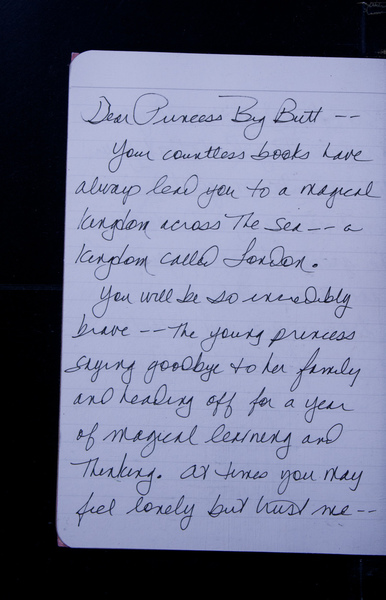 Dear Princess Big Butt --
Your countless books have
always lead you to a magical
kingdom across the sea -- a
kingdom called London.
You will be so incredibly
brave -- the young princess
saying goodbye to her family
and heading off for a year
of magical learning and
thinking. At times you may
feel lonely but trust me --